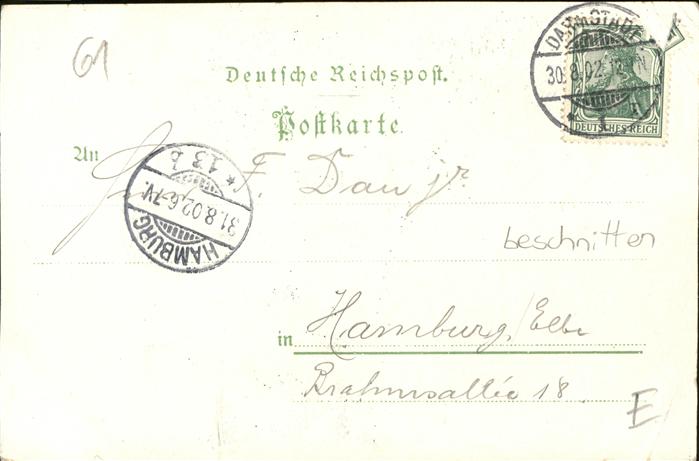 61
Deutsche Reichspost.
Postkarte.
DARMSTADT
30.8.02
DEUTSCHES REICH
An
F. Dau jr.
* 13 b
31.8.02.6-7V.
HAMBURG
beschnitten
in Hamburg/Elbe
Brahmsallée 18
E